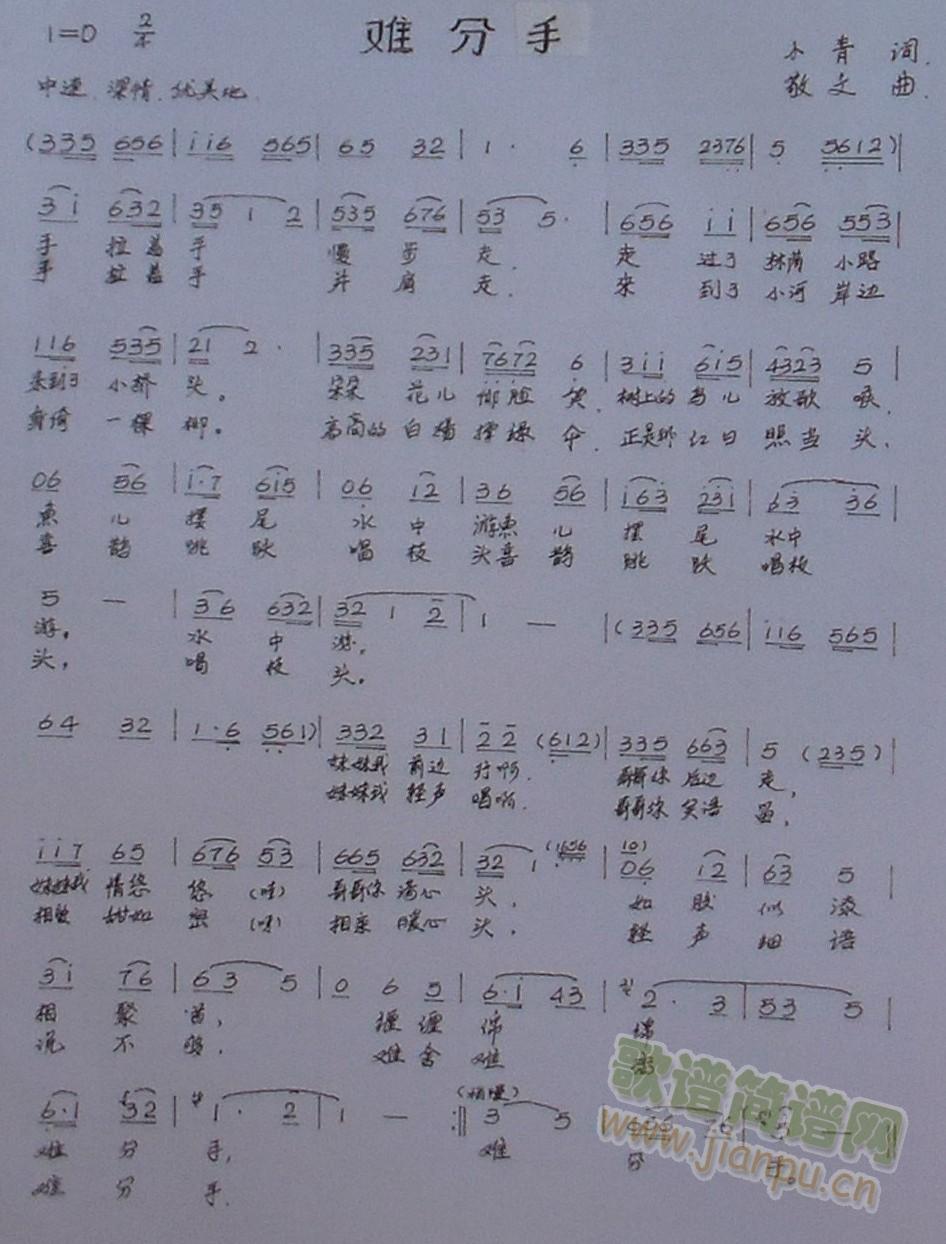 1=D 2/4
难分手
小青 词.
中速 深情.优美地.
敬文 曲.
(335 656 | 116 565 | 65 32 | 1 · 6 | 335 2376 | 5 5612) |
31 632 | 35 1 2 | 535 676 | 53 5· | 656 11 | 656 553 |
手 拉着 手 慢步走. 走过了林荫小路
手 拉着 手 并肩走. 来到了小河岸边
116 535 | 21 2· | 335 231 | 7672 6 | 311 615 | 4323 5 |
来到了小桥头。 朵朵花儿 笑. 树上的鸟儿放歌喉.
身倚一棵柳。 高高的白 伞. 正是那红日照当头.
06 56 | 1·7 615 | 06 12 | 36 56 | 163 231 | 63 36 |
鱼儿摆尾水中游鱼儿摆尾水中
喜鹊跳跃唱枝头喜鹊跳跃唱枝
5 — | 36 632 | 32 1 2 | 1 — | (335 656 | 116 565 |
游。 水中游.
头. 唱枝头。
64 32 | 1·6 561) | 332 31 | 22 (612) | 335 663 | 5 (235) |
妹妹我前边行啊. 哥哥你后边走,
妹妹我轻声唱啊. 哥哥你笑语
117 65 | 676 53 | 665 632 | 32 1· (1656 | 10) 06 12 | 63 5 |
妹妹我情悠悠(哇)哥哥你 心头, 如胶似漆
相 甜如蜜(呀)相亲暖心头, 轻声细语
31 76 | 63 5 | 0 6 5 | 6·1 43 | 2· 3 | 53 5 |
相聚首, 缠缠绵绵
说不够. 难舍难
6·1 32 | 1· 2 | 1 — :| (稍慢) 3 5 |
难分手, 难分手。
难分手.
歌谱简谱网
www.jianpu.cn